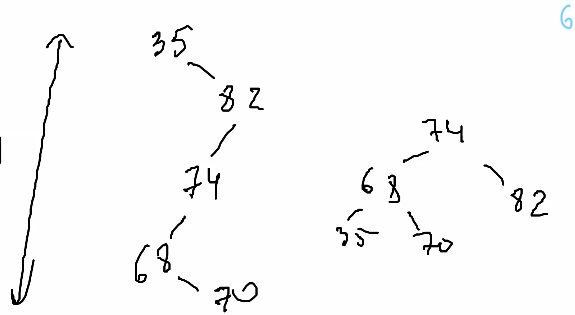 6
35
82
74
68
70
74
68
82
35
70